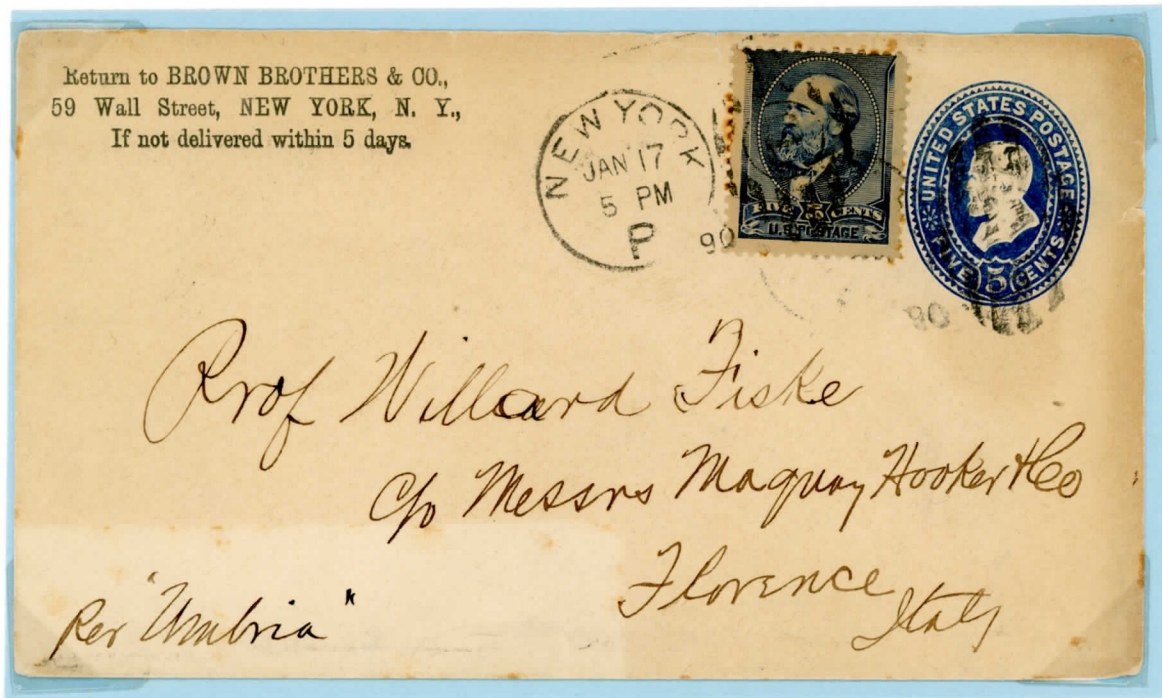 Return to BROWN BROTHERS & CO.,
59 Wall Street, NEW YORK, N. Y.,
If not delivered within 5 days.
NEW YORK
JAN 17
5 PM
P
90
FIVE 5 CENTS
U.S. POSTAGE
UNITED STATES POSTAGE
FIVE 5 CENTS
90
Prof Willard Fiske
c/o Messrs Maquay Hooker & Co
Florence
Italy
Per "Umbria"